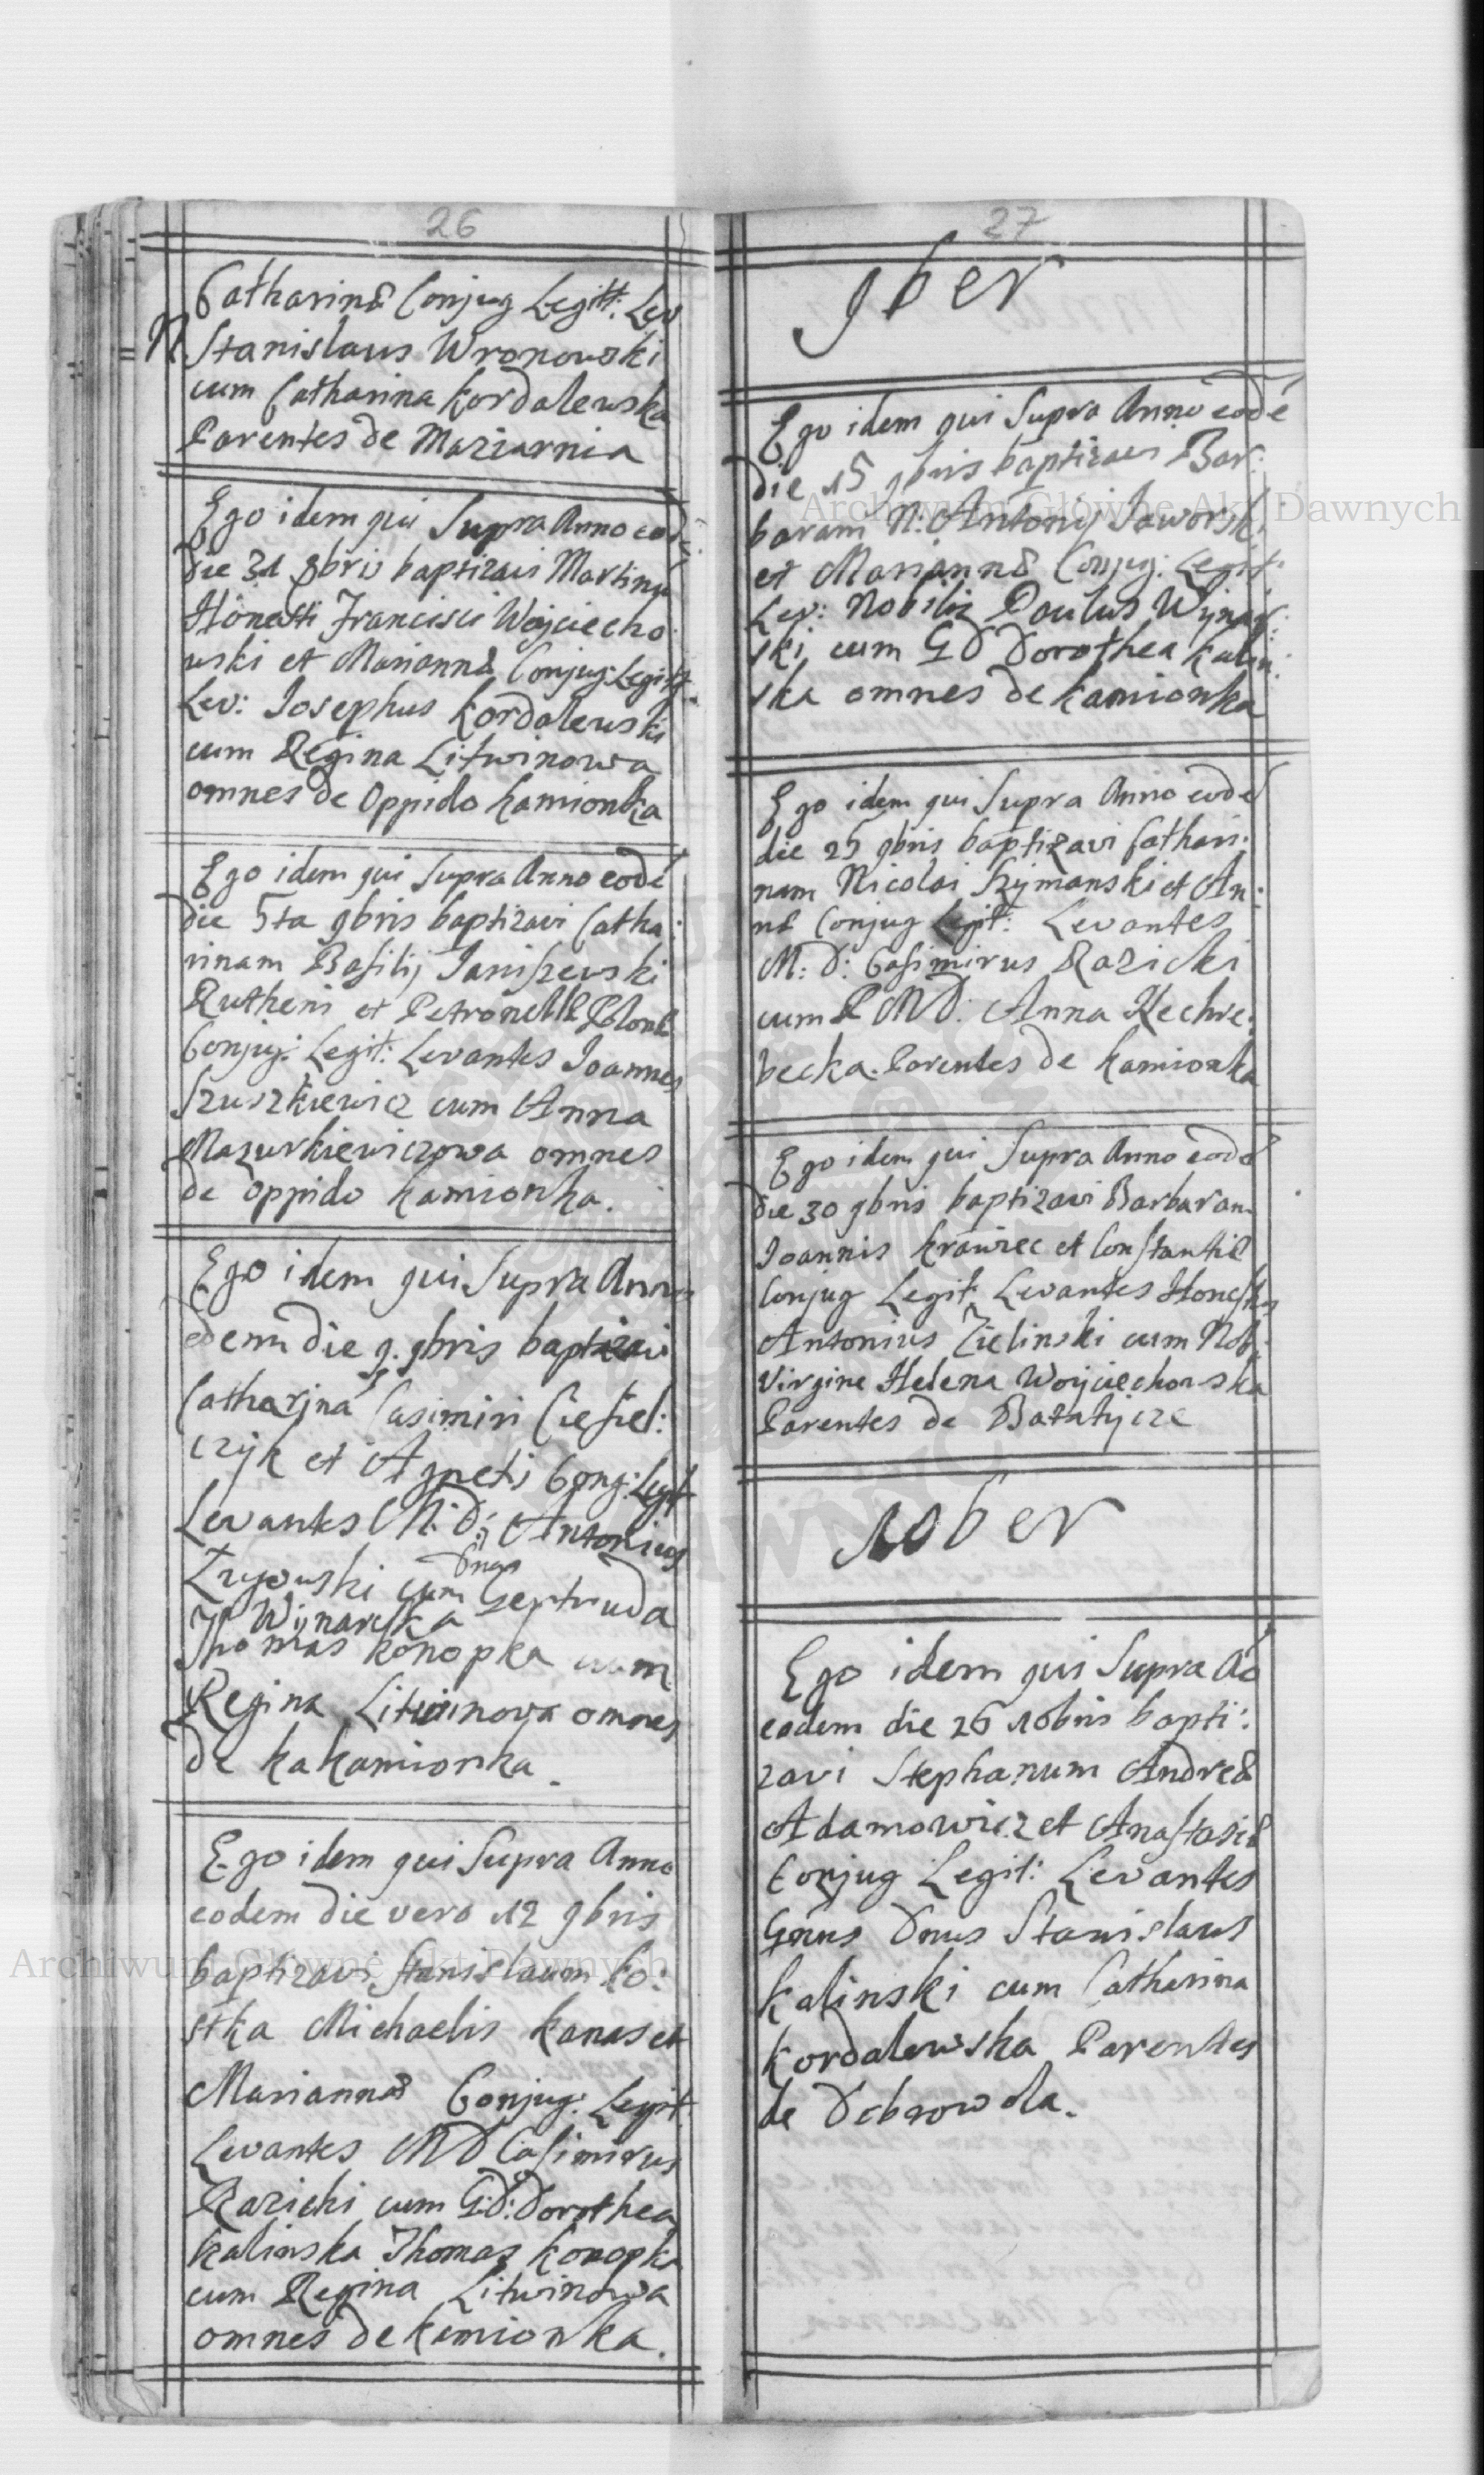 26
Catharinæ Conjug Legitt: Lev
N Stanislaus Wronowski
cum Catharina Kordalewska
Parentes de Maziarnia
Ego idem qui Supra Anno eodē
die 31 8bris baptizavi Martinū
Honesti Francisci Wojciecho:
wski et Mariannæ Conjug: Legitt
Lev: Josephus Kordalewski
cum Regina Litwinowa
omnes de Oppido Kamionka
Ego idem qui Supra Anno eodē
die 5ta 9bris baptizavi Catha:
rinam Basilij Janiszewski
Rutheni et Petronellæ Polonæ
Conjug: Legit: Levantes Joannes
Szuszkiewicz cum Anna
Mazurkiewiczowa omnes
de Oppido Kamionka.
Ego idem qui Supra Anno
eodem die 9. 9bris baptizavi
Catharinā Casimiri Ciesiel:
czyk et Agnetis Cong: Legit
Levantes M: D: Antonius
Łzyowski cum Dnga Gertruda
Wijnarska
Thomas Konopka cum
Regina Litwinowa omnes
de kaKamionka.
Ego idem qui Supra Anno
eodem die vero 12 9bris
baptizavi Stanislaum Ko:
stka Michaelis Kanas et
Mariannæ Conjug: Legit
Levantes MD Casimirus
Razicki cum G:D: Dorothea
Kalinska Thomas Konopka
cum Regina Litwinowa
omnes de Kamionka.
27
9ber
Ego idem qui Supra Anno eodē
die 15 9bris baptizavi Bar:
baram N: Antonij Jaworski
et Mariannæ Conjug: Legit:
Lev: Nobilis Paulus Wijnar:
ski cum GD Dorothea Kalin:
ska omnes de Kamionka
Ego idem qui Supra Anno eodē
die 25 9bris baptizavi Cathari:
nam Nicolai Szymanski et An:
næ Conjug Legit: Levantes
M: D: Casimirus Razicki
cum P MD: Anna Kechre:
becka. Parentes de Kamionka
Ego idem qui Supra Anno eodē
die 30 9bris baptizavi Barbaram
Joannis Krawiec et Constantiæ
Conjug Legit: Levantes Honestus
Antonius Zielinski cum Nob:
Virgine Helena Woyciechowska
Parentes de Batatycze
10ber
Ego idem qui Supra Aō
eodem die 26 10bris bapti:
zavi Stephanum Andreæ
Adamowicz et Anastasiæ
Conjug Legit: Levantes
Gnus Dnus Stanislaus
Kalinski cum Catharina
Kordalewska Parentes
de Dobrowola.
Archiwum Główne Akt Dawnych
Archiwum Główne Akt Dawnych